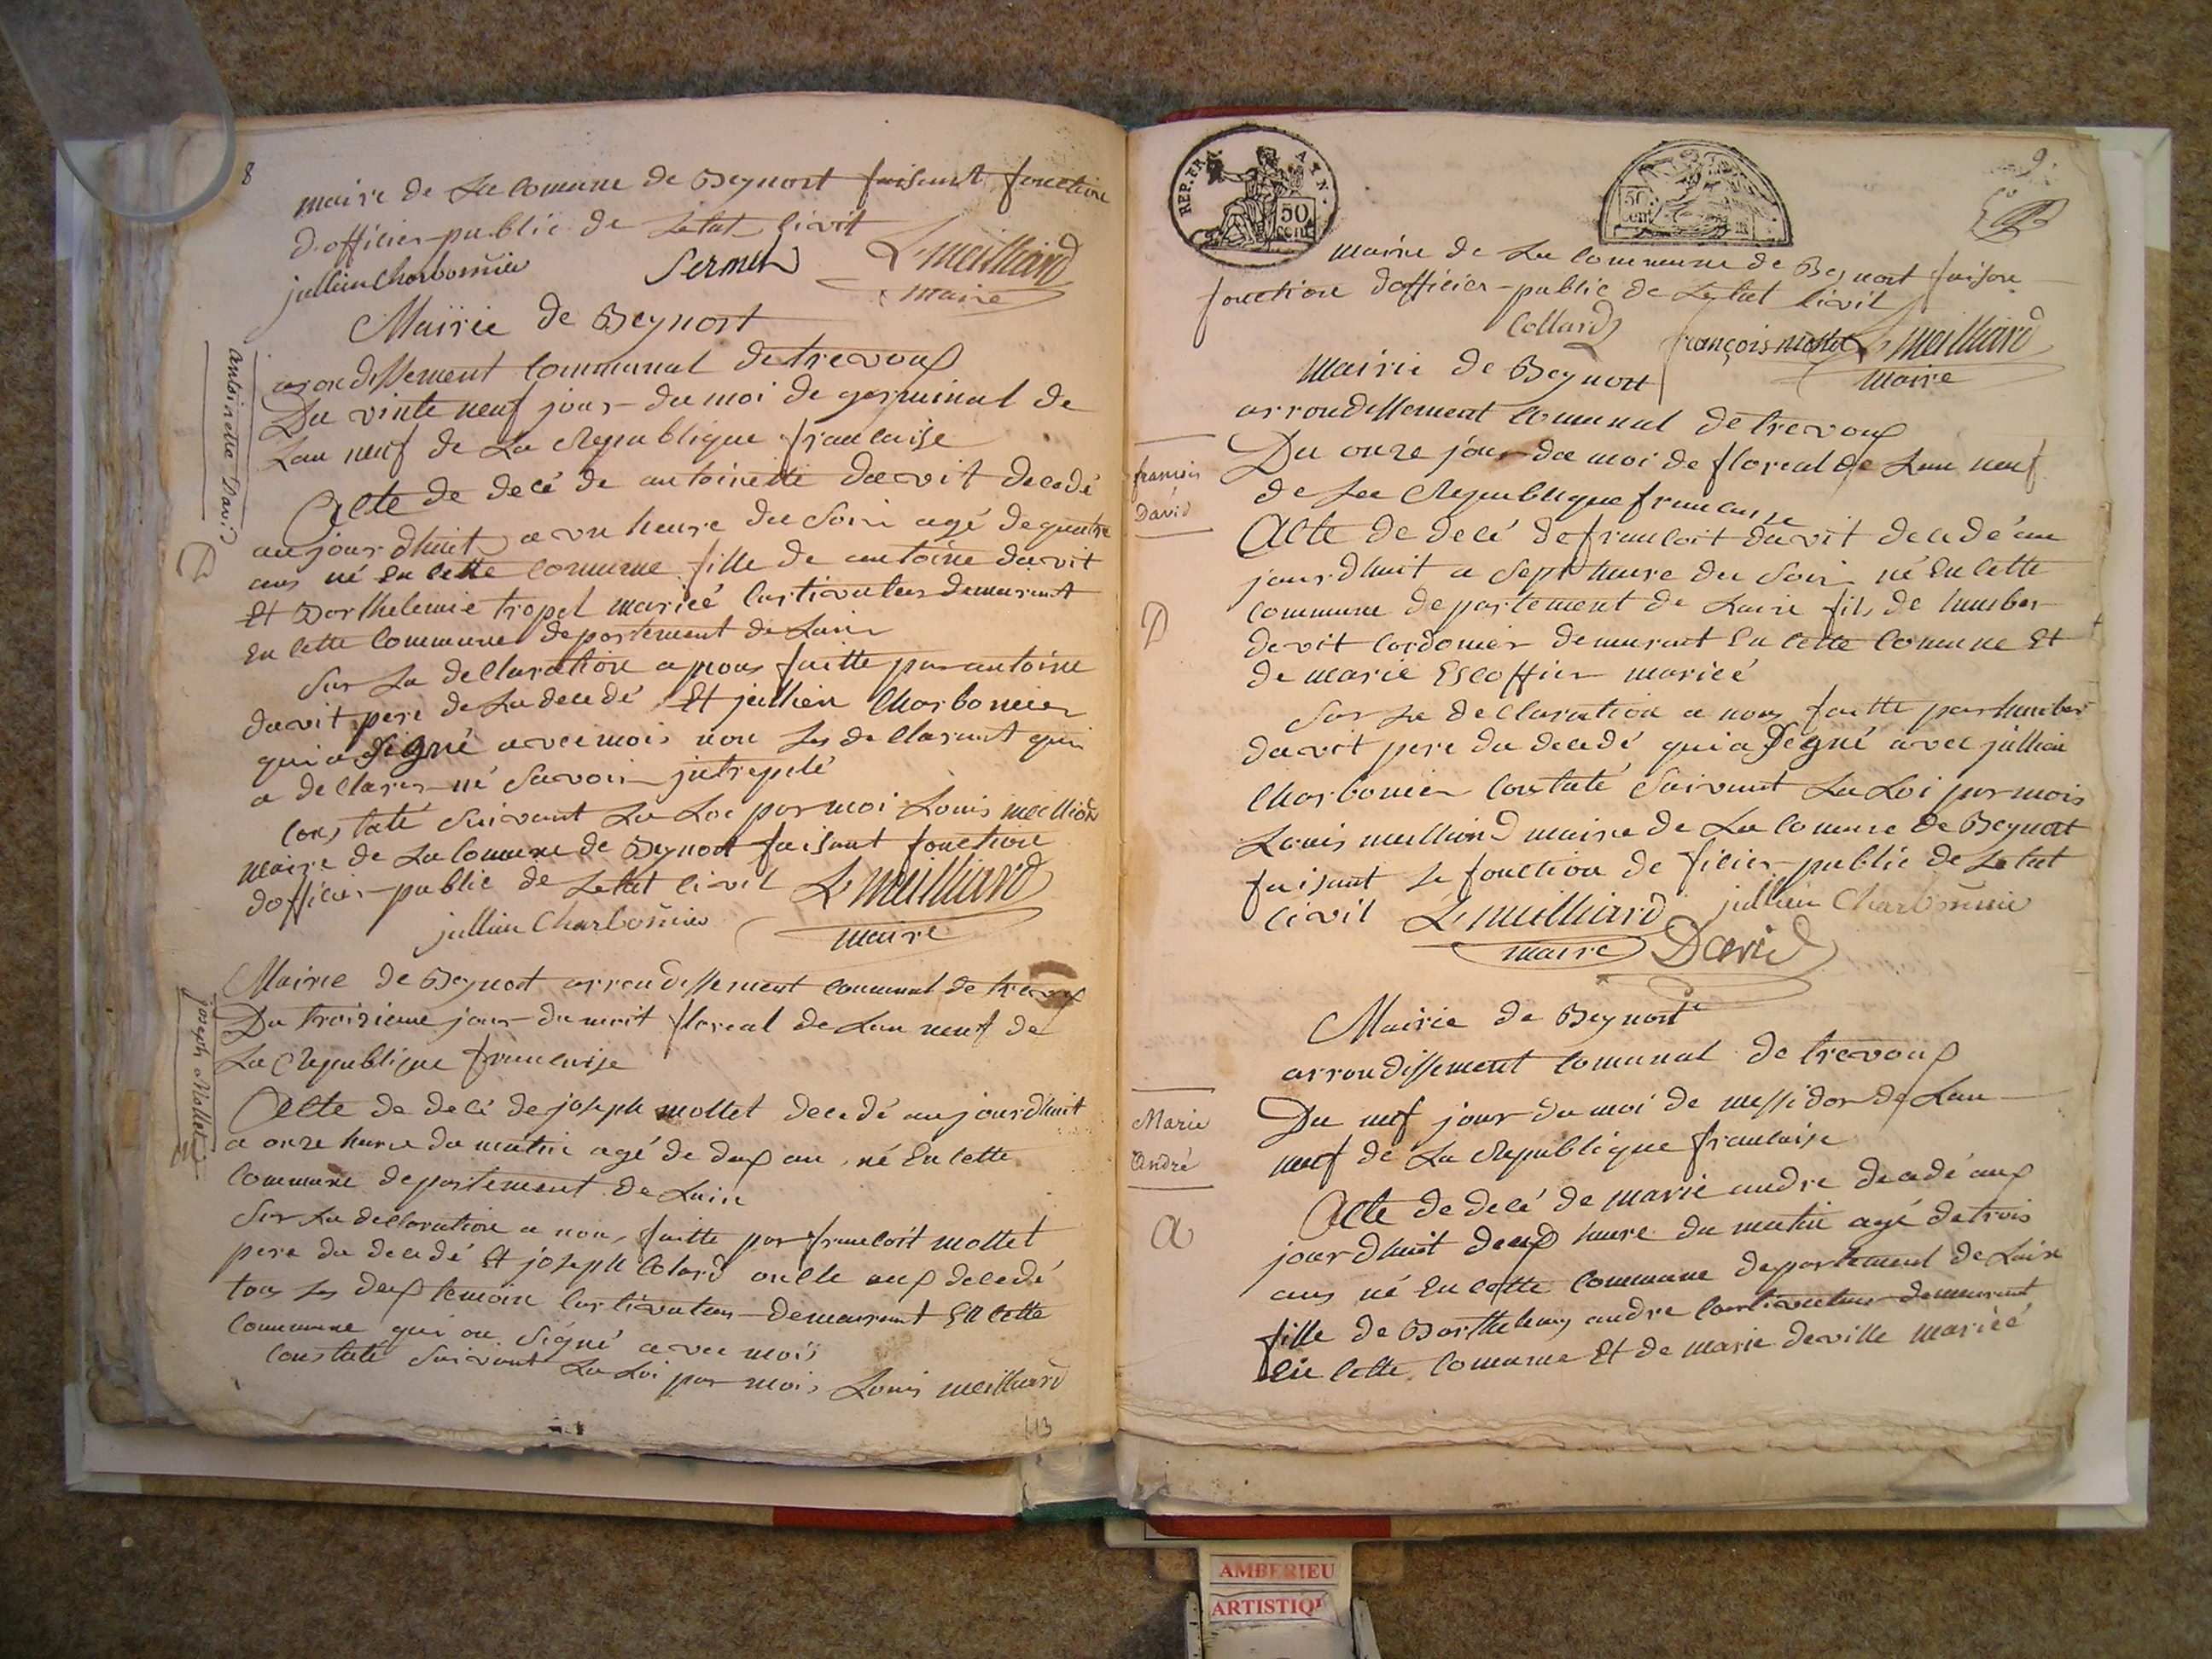 8
maire de La comune de Beynost faisant fonction
d'officier public de Letat civil
jullien Charbonnier Sermet L. meilliand
maire
Mairie de Beynost
arondissement communal de trevoux
Antoinette David
Du vinte neuf jour du moi de germinal de
Lan neuf de La Republique francaise
Acte de decé de antoinette davit decedé
aujourdhuit a un heure du soir agé de quatre
ans né en cette comune fille de antoine davit
D
Et Barthelemie tropel marieé cultivateur demurant
En cette commune departement de Lain
Sur La declaration a nous faitte par antoine
davit pere de La decedé Et jullien Charbonier
qui a signé avec mois non Les declarant qui
a declarer né savoir
constaté suivant La Loi par moi Louis meilliand
maire de La Comune de Beynost faisant fonction
dofficier public de Letat civil L. meilliand
jullien Charbonnier maire
Mairie de Beynost arrondissement communal de trevoux
Joseph Mollet
Du troizieme jour du moit floreal de Lan neuf de
La Republique francaise
Acte de decé de joseph mollet decedé aujourdhuit
a onze heure du matin agé de deux an né En cette
commune departement de Lain
Sur La declaration a nous faitte par francoit mollet
pere du decedé Et joseph Colard oncle aux decedé
tous Les deux temoin cultivateur demeurant En cette
commune qui on signé avec mois
constaté suivant La Loi par mois Louis meilliard
113
REP. FRA. 50 cent A. 7 N.
50 cent
9.
maire de La commune de Beynost faisan
fonction dofficier public de Letat civil
Collard françois mollet L. meilliand
maire
Mairie de Beynost
arrondissement comunal de trevoux
françois David
Du onze jour du moi de floreal de Lan neuf
de La Republique francaise
Acte de decé de francoit davit decedé au
jourdhuit a sept heure du soir né En cette
D
commune departement de Lain fils de humber
davit cordonier demurant En cette comune Et
de marie Escoffier marieé
Sur La declaration a nous faitte par humber
davit pere du decedé qui a signé avec jullien
Charbonier constaté suivant La Loi par mois
Louis meilliand maire de La comune de Beynost
faisant Le fonction de ficier public de Letat
civil L. meilliard jullien Charbonnier
maire David
Mairie de Beynost
arrondissement comunal de trevoux
Marie André
Du neuf jour du moi de messidor de Lan
neuf de La Republique francaise
Acte de decé de marie andre decedé aux
A
jourdhuit deux heure du matin agé de trois
ans né En cette commune departement de Lain
fille de Barthelemy andre cultivateur demeurant
En cette comune Et de marie deville marieé
AMBERIEU
ARTISTIQU